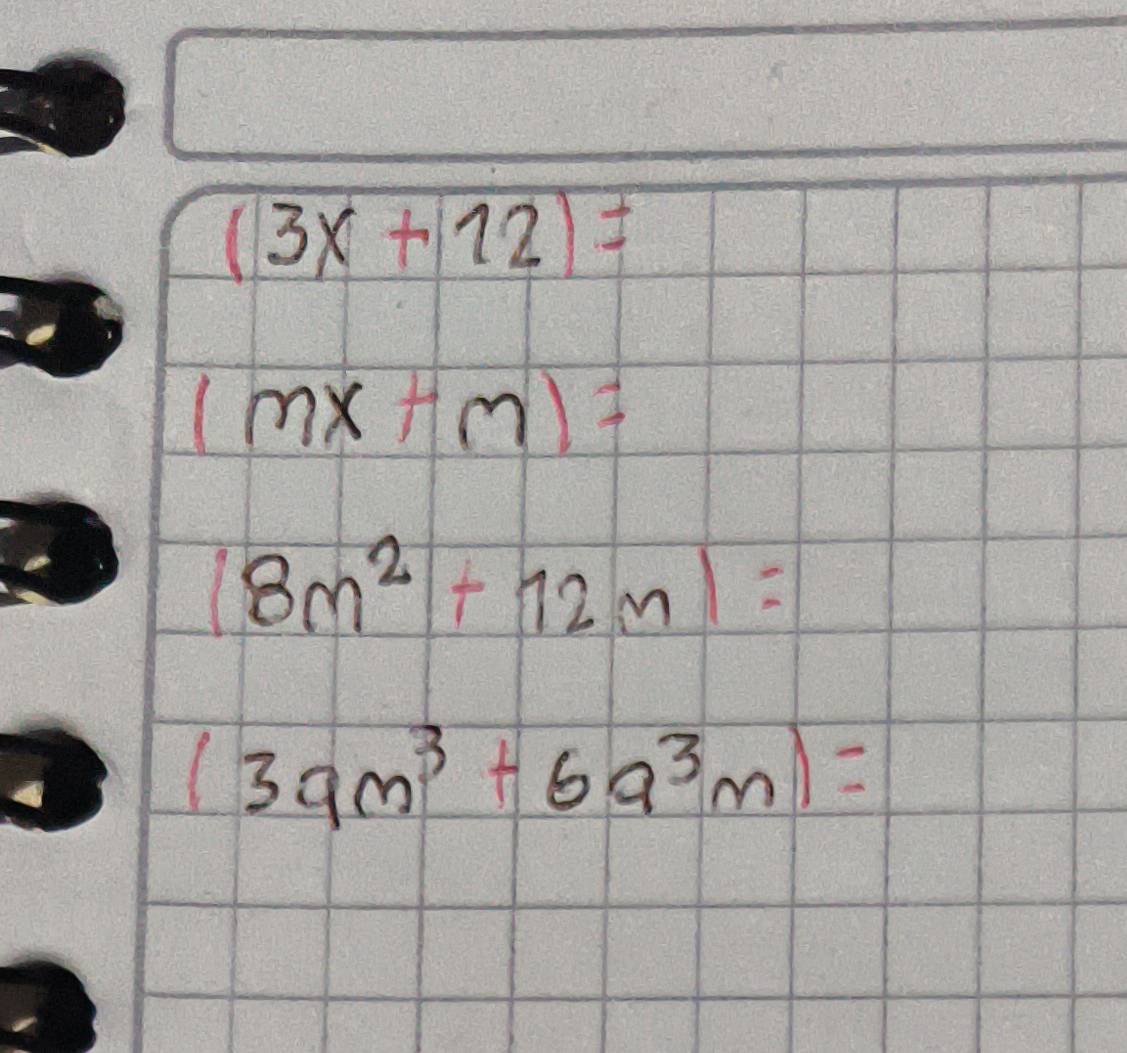 (3x + 12) =
(mx + m) =
(8m² + 12m) =
(3am³ + 6a³m) =